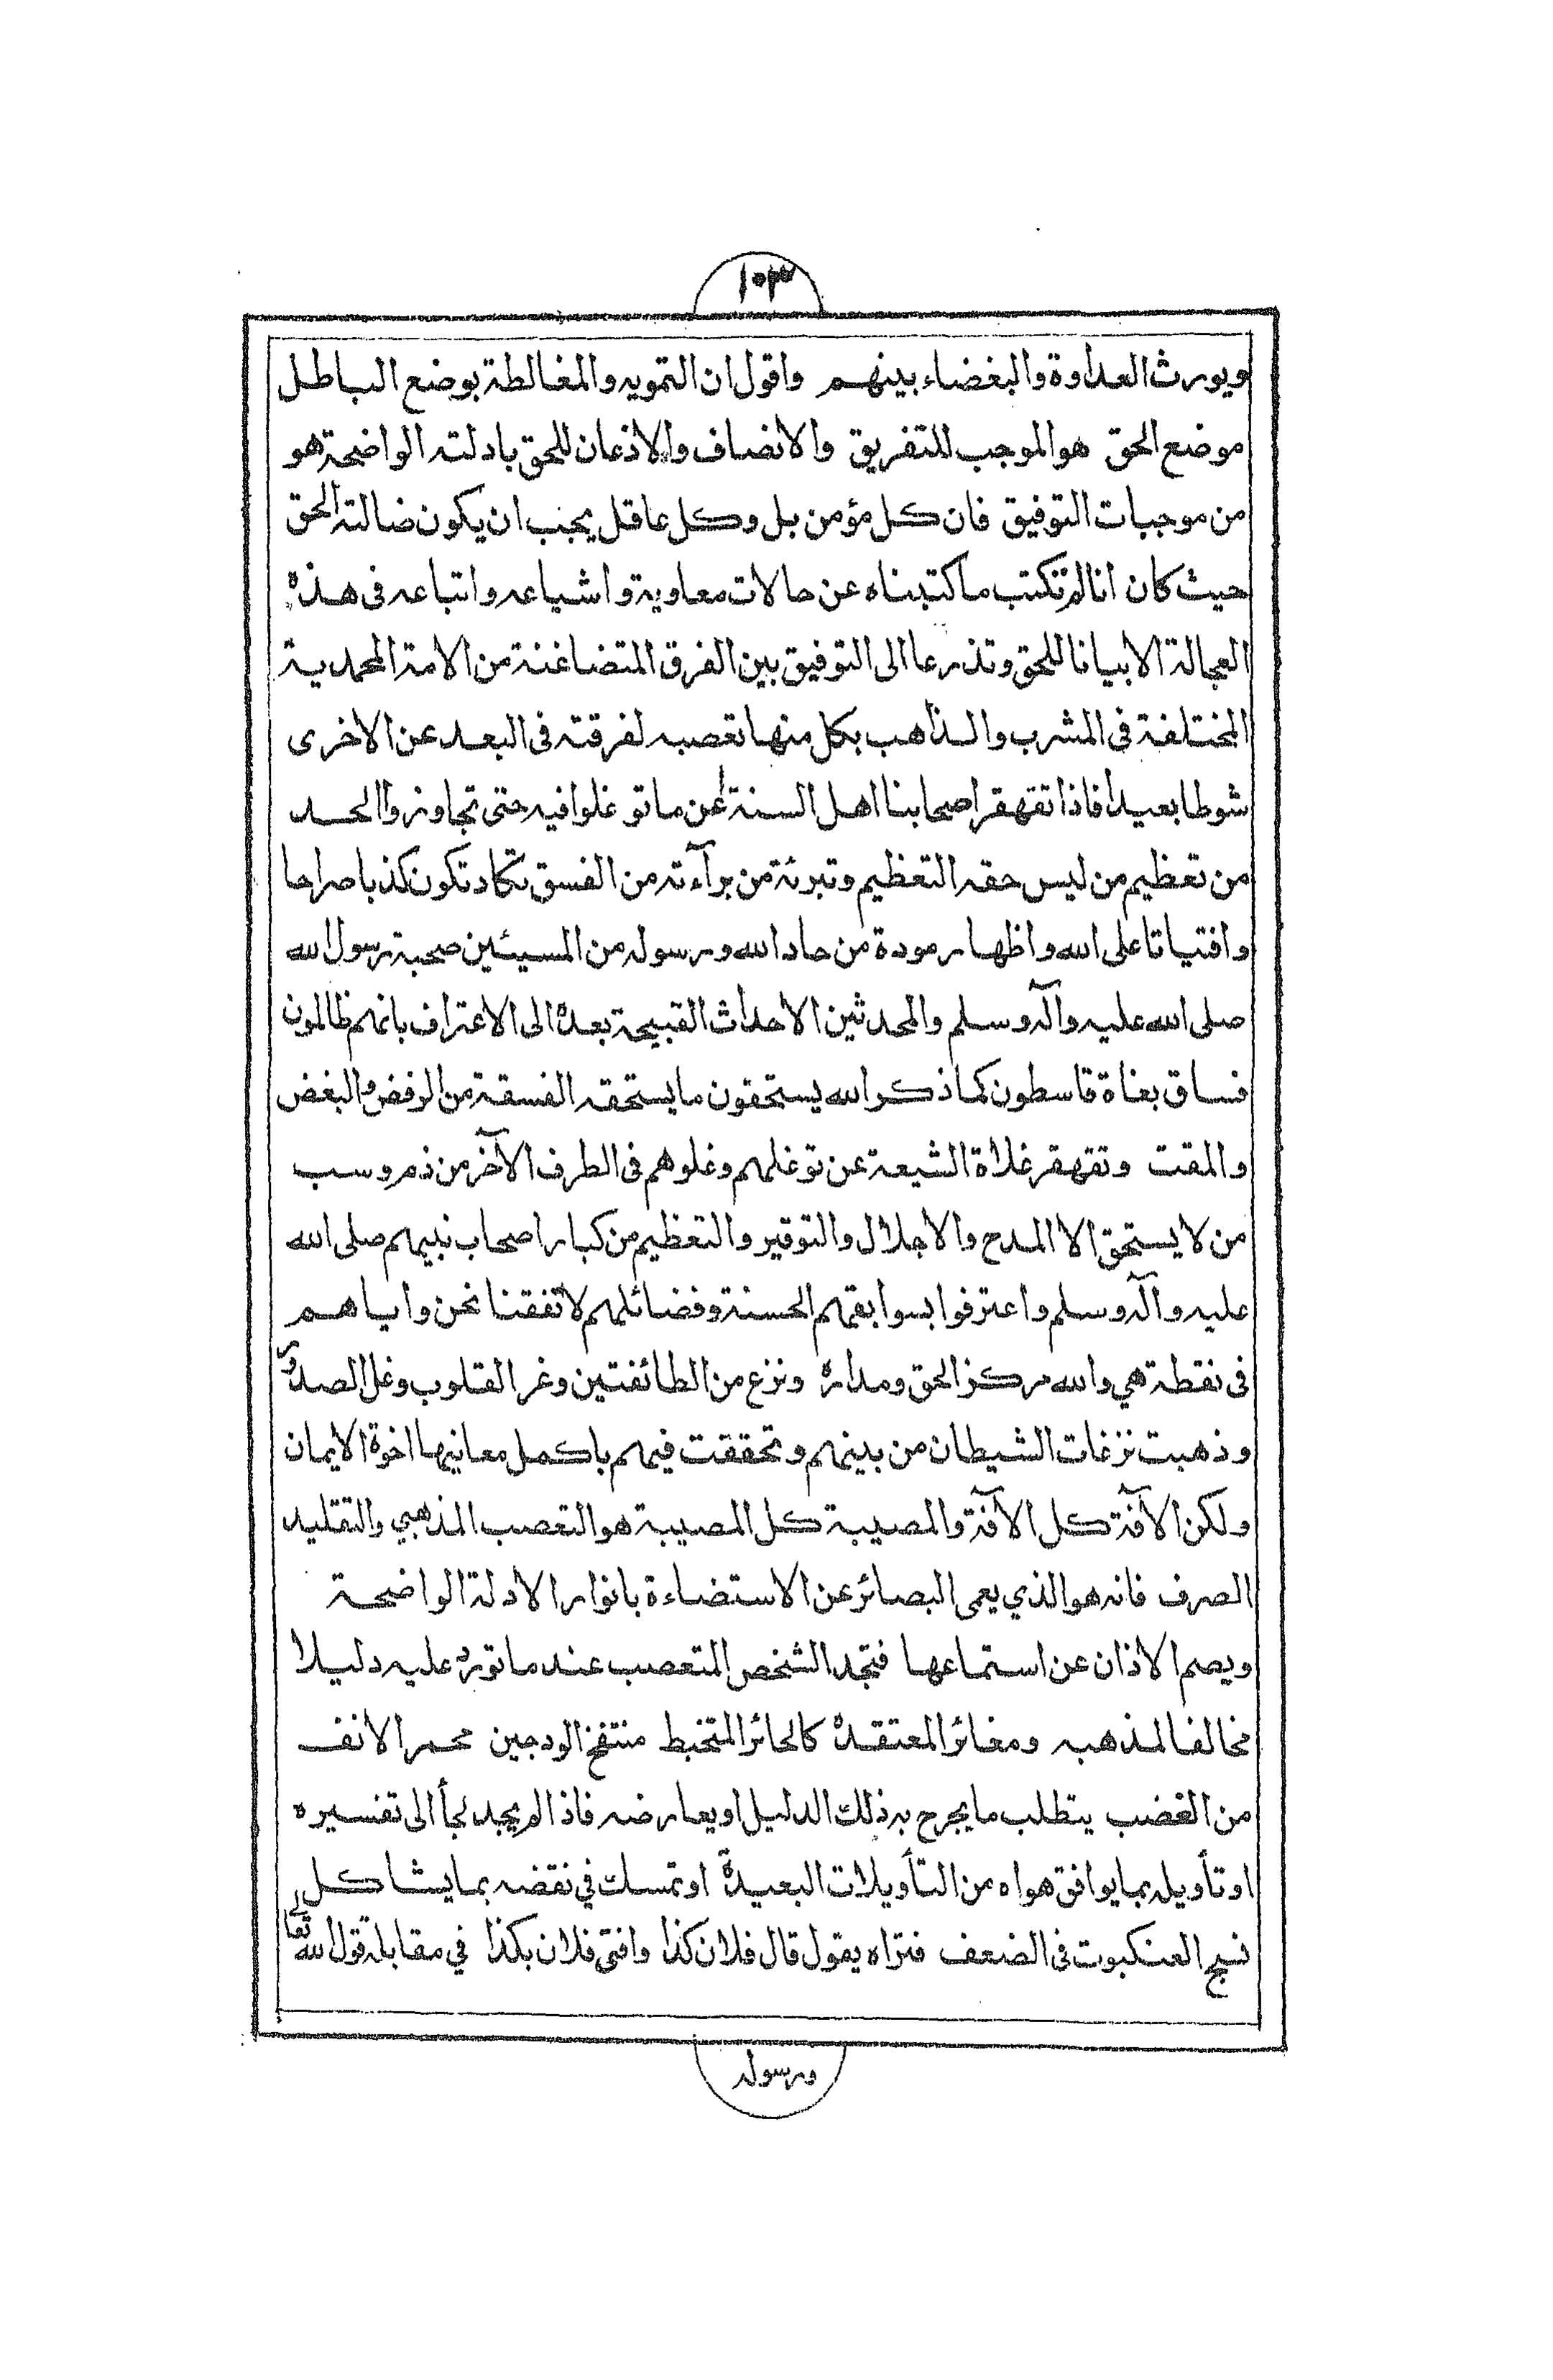 ١٠٣
ويورث العداوة والبغضاء بينهم واقول ان التمويه والمغالطة بوضع الباطل
موضع الحق هو الموجب للتفريق والانصاف والاذعان للحق بادلته الواضحة هو
من موجبات التوفيق فان كل مؤمن بل وكل عاقل يجب ان يكون ضالته الحق
حيث كان انا لم نكتب ما كتبناه عن حالات معاوية واشياعه واتباعه فى هذه
العجالة الا بيانا للحق وتذرعا الى التوفيق بين الفرق المتضاغنة من الامة المحمدية
المختلفة فى المشرب والذاهب بكل منها تعصبه لفرقته فى البعد عن الاخرى
شوطا بعيدا فاذا تقهقر اصحابنا اهل السنة عن ما توغلوا فيه حتى تجاوزوا الحد
من تعظيم من ليس حقه التعظيم وتبرئة من برآءته من الفسق تكاد تكون كذبا صراحا
وافتياتا على الله واظهار مودة من حاد الله ورسوله من المسيئين صحبة رسول الله
صلى الله عليه وآله وسلم والمحدثين الاحداث القبيحة بعده الى الاعتراف بانهم ظالمون
فساق بغاة قاسطون كما ذكر الله يستحقون ما يستحقه الفسقة من الرفض والبغض
والمقت وتقهقر غلاة الشيعة عن توغلهم وغلوهم فى الطرف الآخر من ذم وسب
من لا يستحق الا المدح والاجلال والتوقير والتعظيم من كبار اصحاب نبيهم صلى الله
عليه وآله وسلم واعترفوا بسوابقهم الحسنة وفضائلهم لاتفقنا نحن واياهم
فى نقطة هي والله مركز الحق ومداره ونزع من الطائفتين وغر القلوب وغل الصدور
وذهبت نزغات الشيطان من بينهم وتحققت فيهم باكمل معانيها اخوة الايمان
ولكن الآفة كل الآفة والمصيبة كل المصيبة هو التعصب المذهبي والتقليد
الصرف فانه هو الذي يعمى البصائر عن الاستضاءة بانوار الادلة الواضحة
ويصم الاذان عن استماعها فتجد الشخص المتعصب عند ما تورد عليه دليلا
مخالفا لمذهبه ومغائرا لمعتقده كالحائر المتخبط منتفخ الودجين محمر الانف
من الغضب يتطلب ما يجرح به ذلك الدليل او يعارضه فاذا لم يجد لجأ الى تفسيره
او تأويله بما يوافق هواه من التأويلات البعيدة او تمسك في نقضه بما يشاكل
نسج العنكبوت فى الضعف فتراه يقول قال فلان كذا وافتى فلان بكذا في مقابلة قول الله تعالى
ورسوله